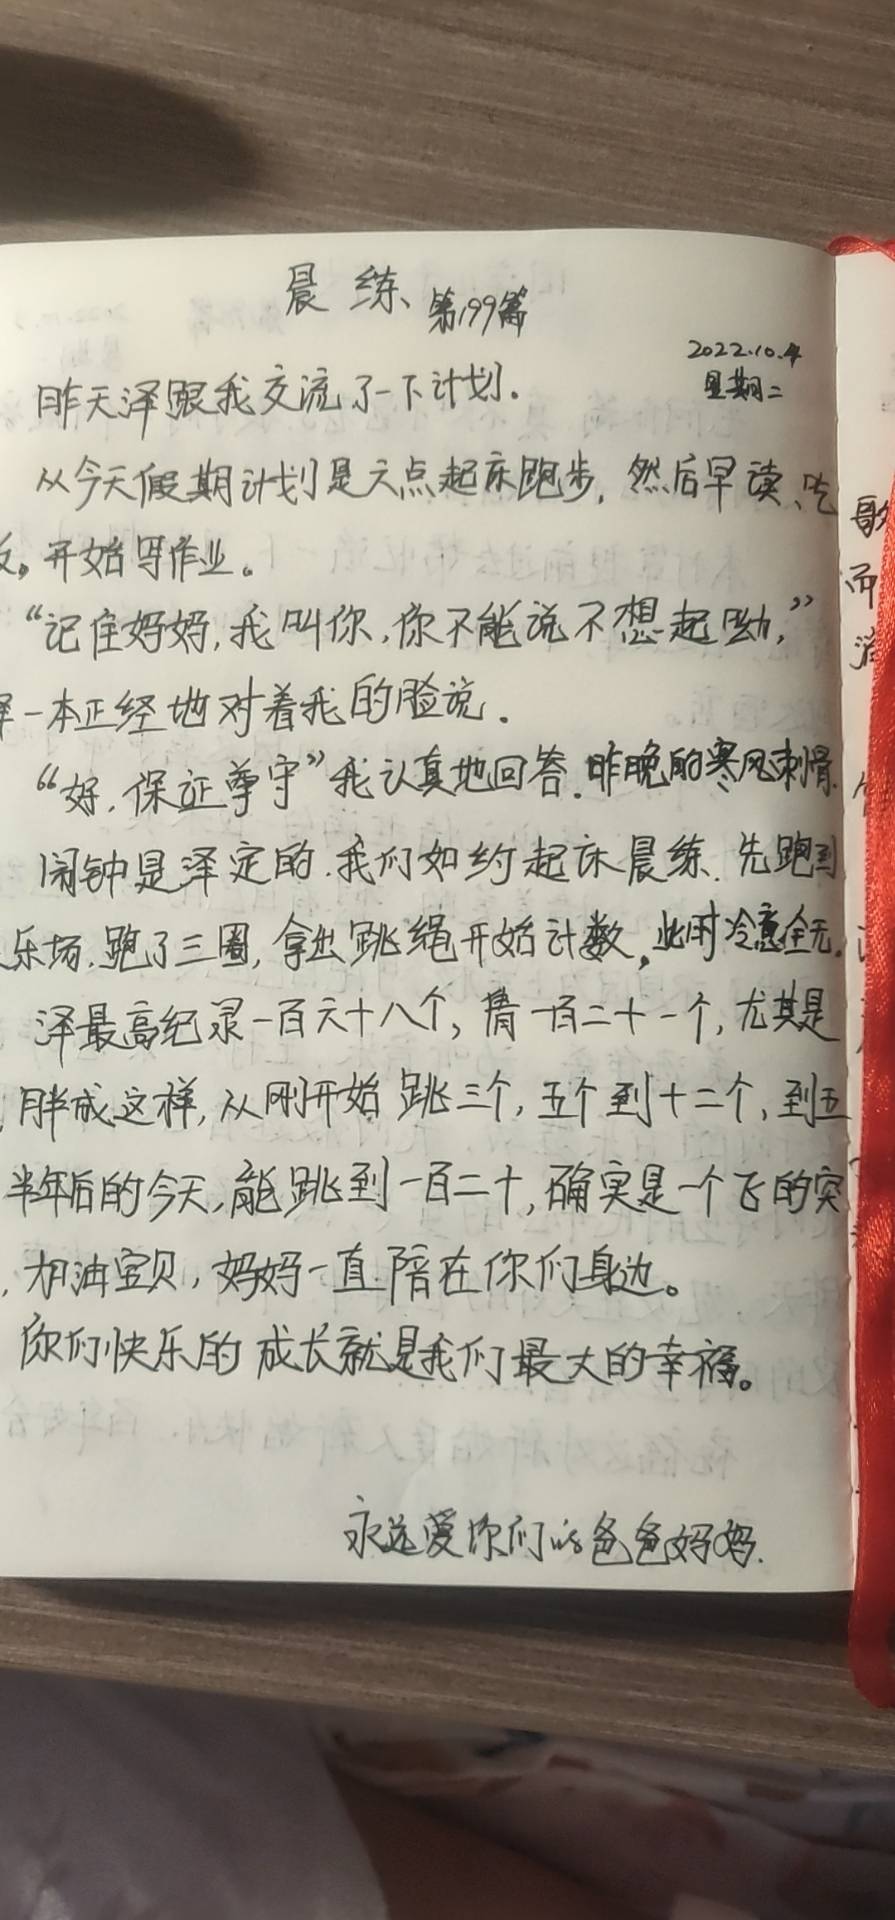 晨练
第199篇
2022.10.4
星期二
昨天泽跟我交流了一下计划.
从今天假期计划是六点起床跑步,然后早读、吃
。开始写作业。
“记住妈妈,我叫你,你不能说不想起呦,”
一本正经地对着我的脸说.
“好,保证尊守”我认真地回答.昨晚的寒风刺骨.
闹钟是泽定的.我们如约起床晨练.先跑到
乐场.跑了三圈,拿出跳绳开始计数,此时冷意全无.
泽最高纪录一百六十八个,倩一百二十一个,尤其是
胖成这样,从刚开始跳三个,五个到十二个,到五
半年后的今天,能跳到一百二十,确实是一个飞的突
,加油宝贝,妈妈一直陪在你们身边。
你们快乐的成长就是我们最大的幸福。
永远爱你们的爸爸妈妈.
歌
而